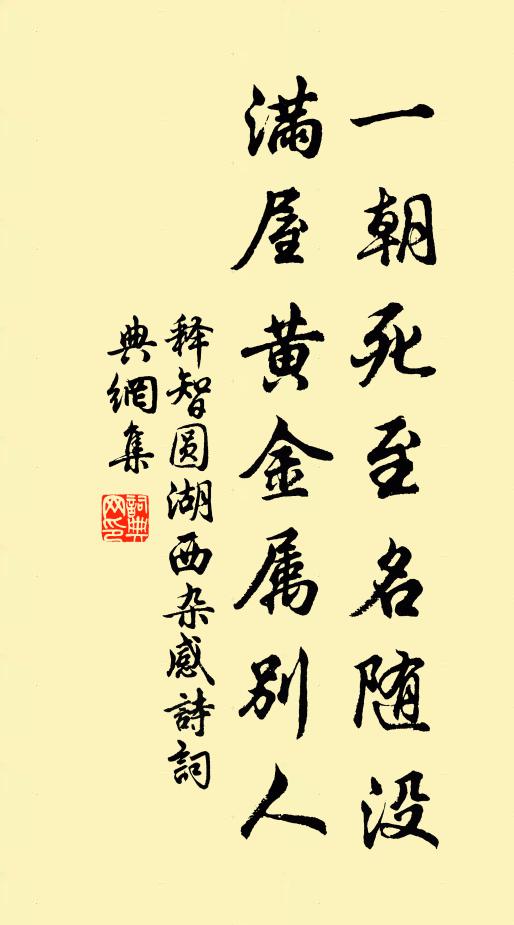 一朝死至名随没
满屋黄金属别人
释智圆湖西杂感詩詞
典網集
詞典网印